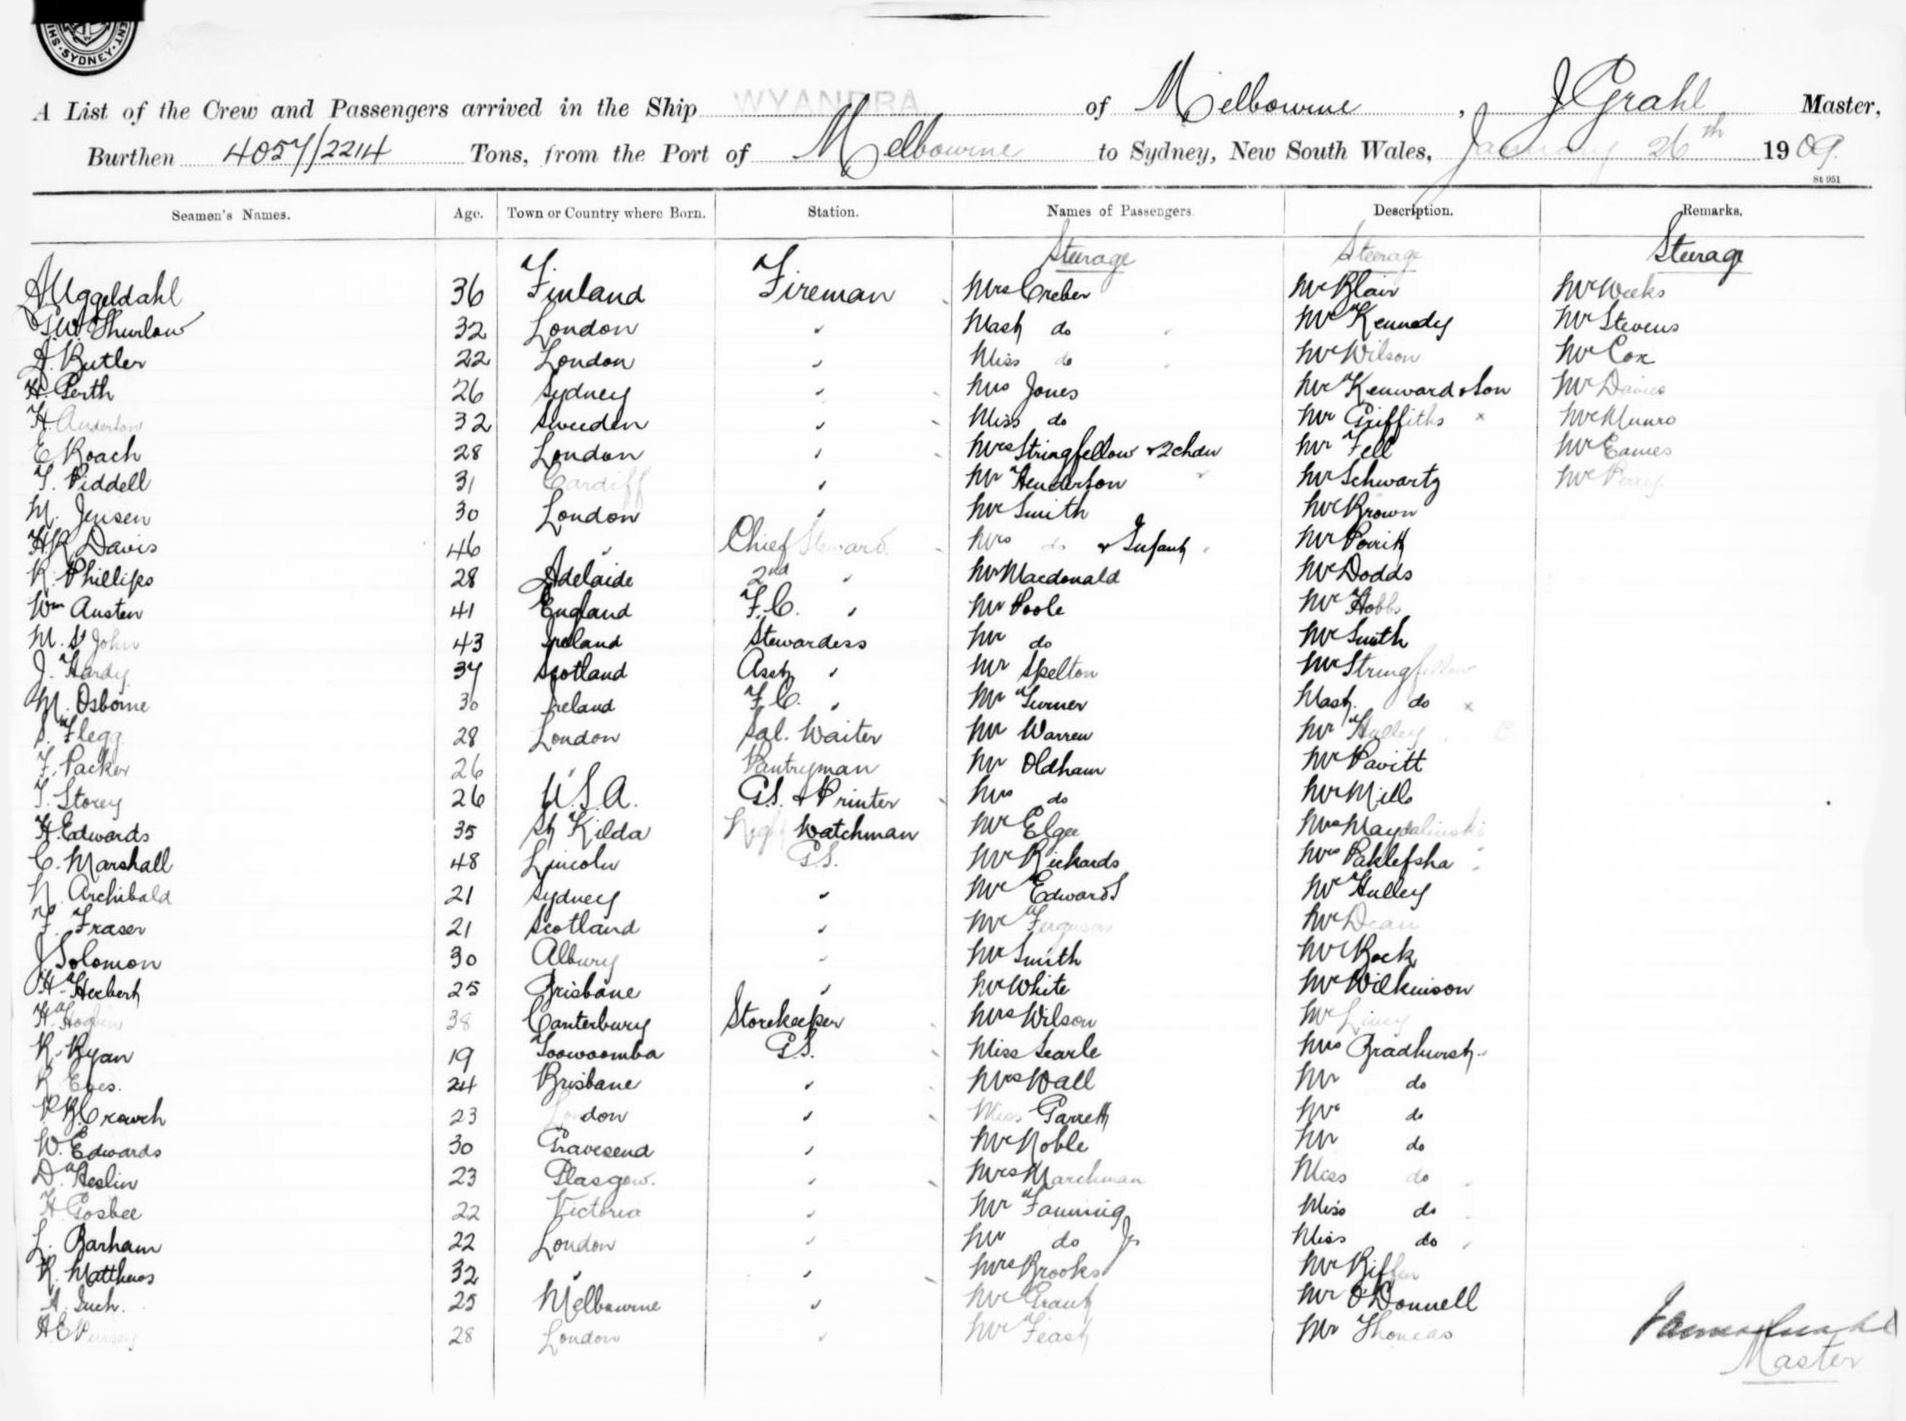 SYDNEY
A List of the Crew and Passengers arrived in the Ship WYANDRA of Melbourne, J Grahl Master,
Burthen 4057/2214 Tons, from the Port of Melbourne to Sydney, New South Wales, January 26th 1909.
St 951
Seamen's Names. Age. Town or Country where Born. Station. Names of Passengers. Description. Remarks.
Steerage Steerage Steerage
A Uggeldahl 36 Finland Fireman Mrs Creber Mr Blair Mr Weeks
G.W. Thurlow 32 London " Mast do Mr Kennedy Mr Stevens
A. Butler 22 London " Miss do Mr Wilson Mr Cox
H. Perth 26 Sydney " Mrs Jones Mr Kenward & Son Mr Davies
H. Anderson 32 Sweeden " Miss do Mr Griffiths x Mr Munro
E Roach 28 London " Mrs Stringfellow & 2 chdn Mr Fell Mr Eames
T. Piddell 31 Cardiff " Mr Henderson Mr Schwartz Mr Perry
M. Jensen 30 London " Mr Smith Mr Brown
H.R. Davis 46 " Chief Steward Mrs do & Infant Mr Porritt
R. Phillips 28 Adelaide 2nd " Mr Macdonald Mr Dodds
Wm Austen 41 England F.C. " Mr Poole Mr Hobbs
M. St John 43 Ireland Stewardess Mr do Mr Smith
J. Hardy 37 Scotland Asst " Mr Spelton Mr Stringfellow
M. Osborne 30 Ireland F.C. " Mr Turner Mast. do x
S. Flegg 28 London Sal. Waiter Mr Warren Mr Hulley
F. Packer 26 " Pantryman Mr Oldham Mr Pavitt
T. Storey 26 U.S.A. G.S. & Printer Mrs do Mr Mills
H. Edwards 35 St Kilda Night Watchman Mr Elgee Mrs Maydalinski
C. Marshall 48 Lincoln G.S. Mr Rickards Mrs Paklefsha
N. Archibald 21 Sydney " Mr Edwards Mr Hulley
F. Fraser 21 Scotland " Mr Ferguson Mr Dean
J Solomon 30 Albury " Mr Smith Mr Bock
H. Herbert 25 Brisbane " Mr White Mr Wilkinson
H. Hogben 38 Canterbury Storekeeper Mrs Wilson Mr Liney
R. Ryan 19 Toowoomba G.S. Miss Searle Mrs Bradhurst
R Eves. 24 Brisbane " Mrs Wall Mr do
P.B. Crouch 23 London " Miss Garrett Mr do
W. Edwards 30 Gravesend " Mr Noble Mr do
D. Heslin 23 Glasgow. " Mrs Marchman Miss do
H. Gosbee 22 Victoria " Mr Fanning Miss do
L. Barham 22 London " Mr do Jr Miss do
R. Matthews 32 " " Mrs Brooks Mr
A. Such. 25 Melbourne " Mr Grant Mr O'Donnell
H E 28 London " Mr Feast Mr Thomas
James Grahl
Master